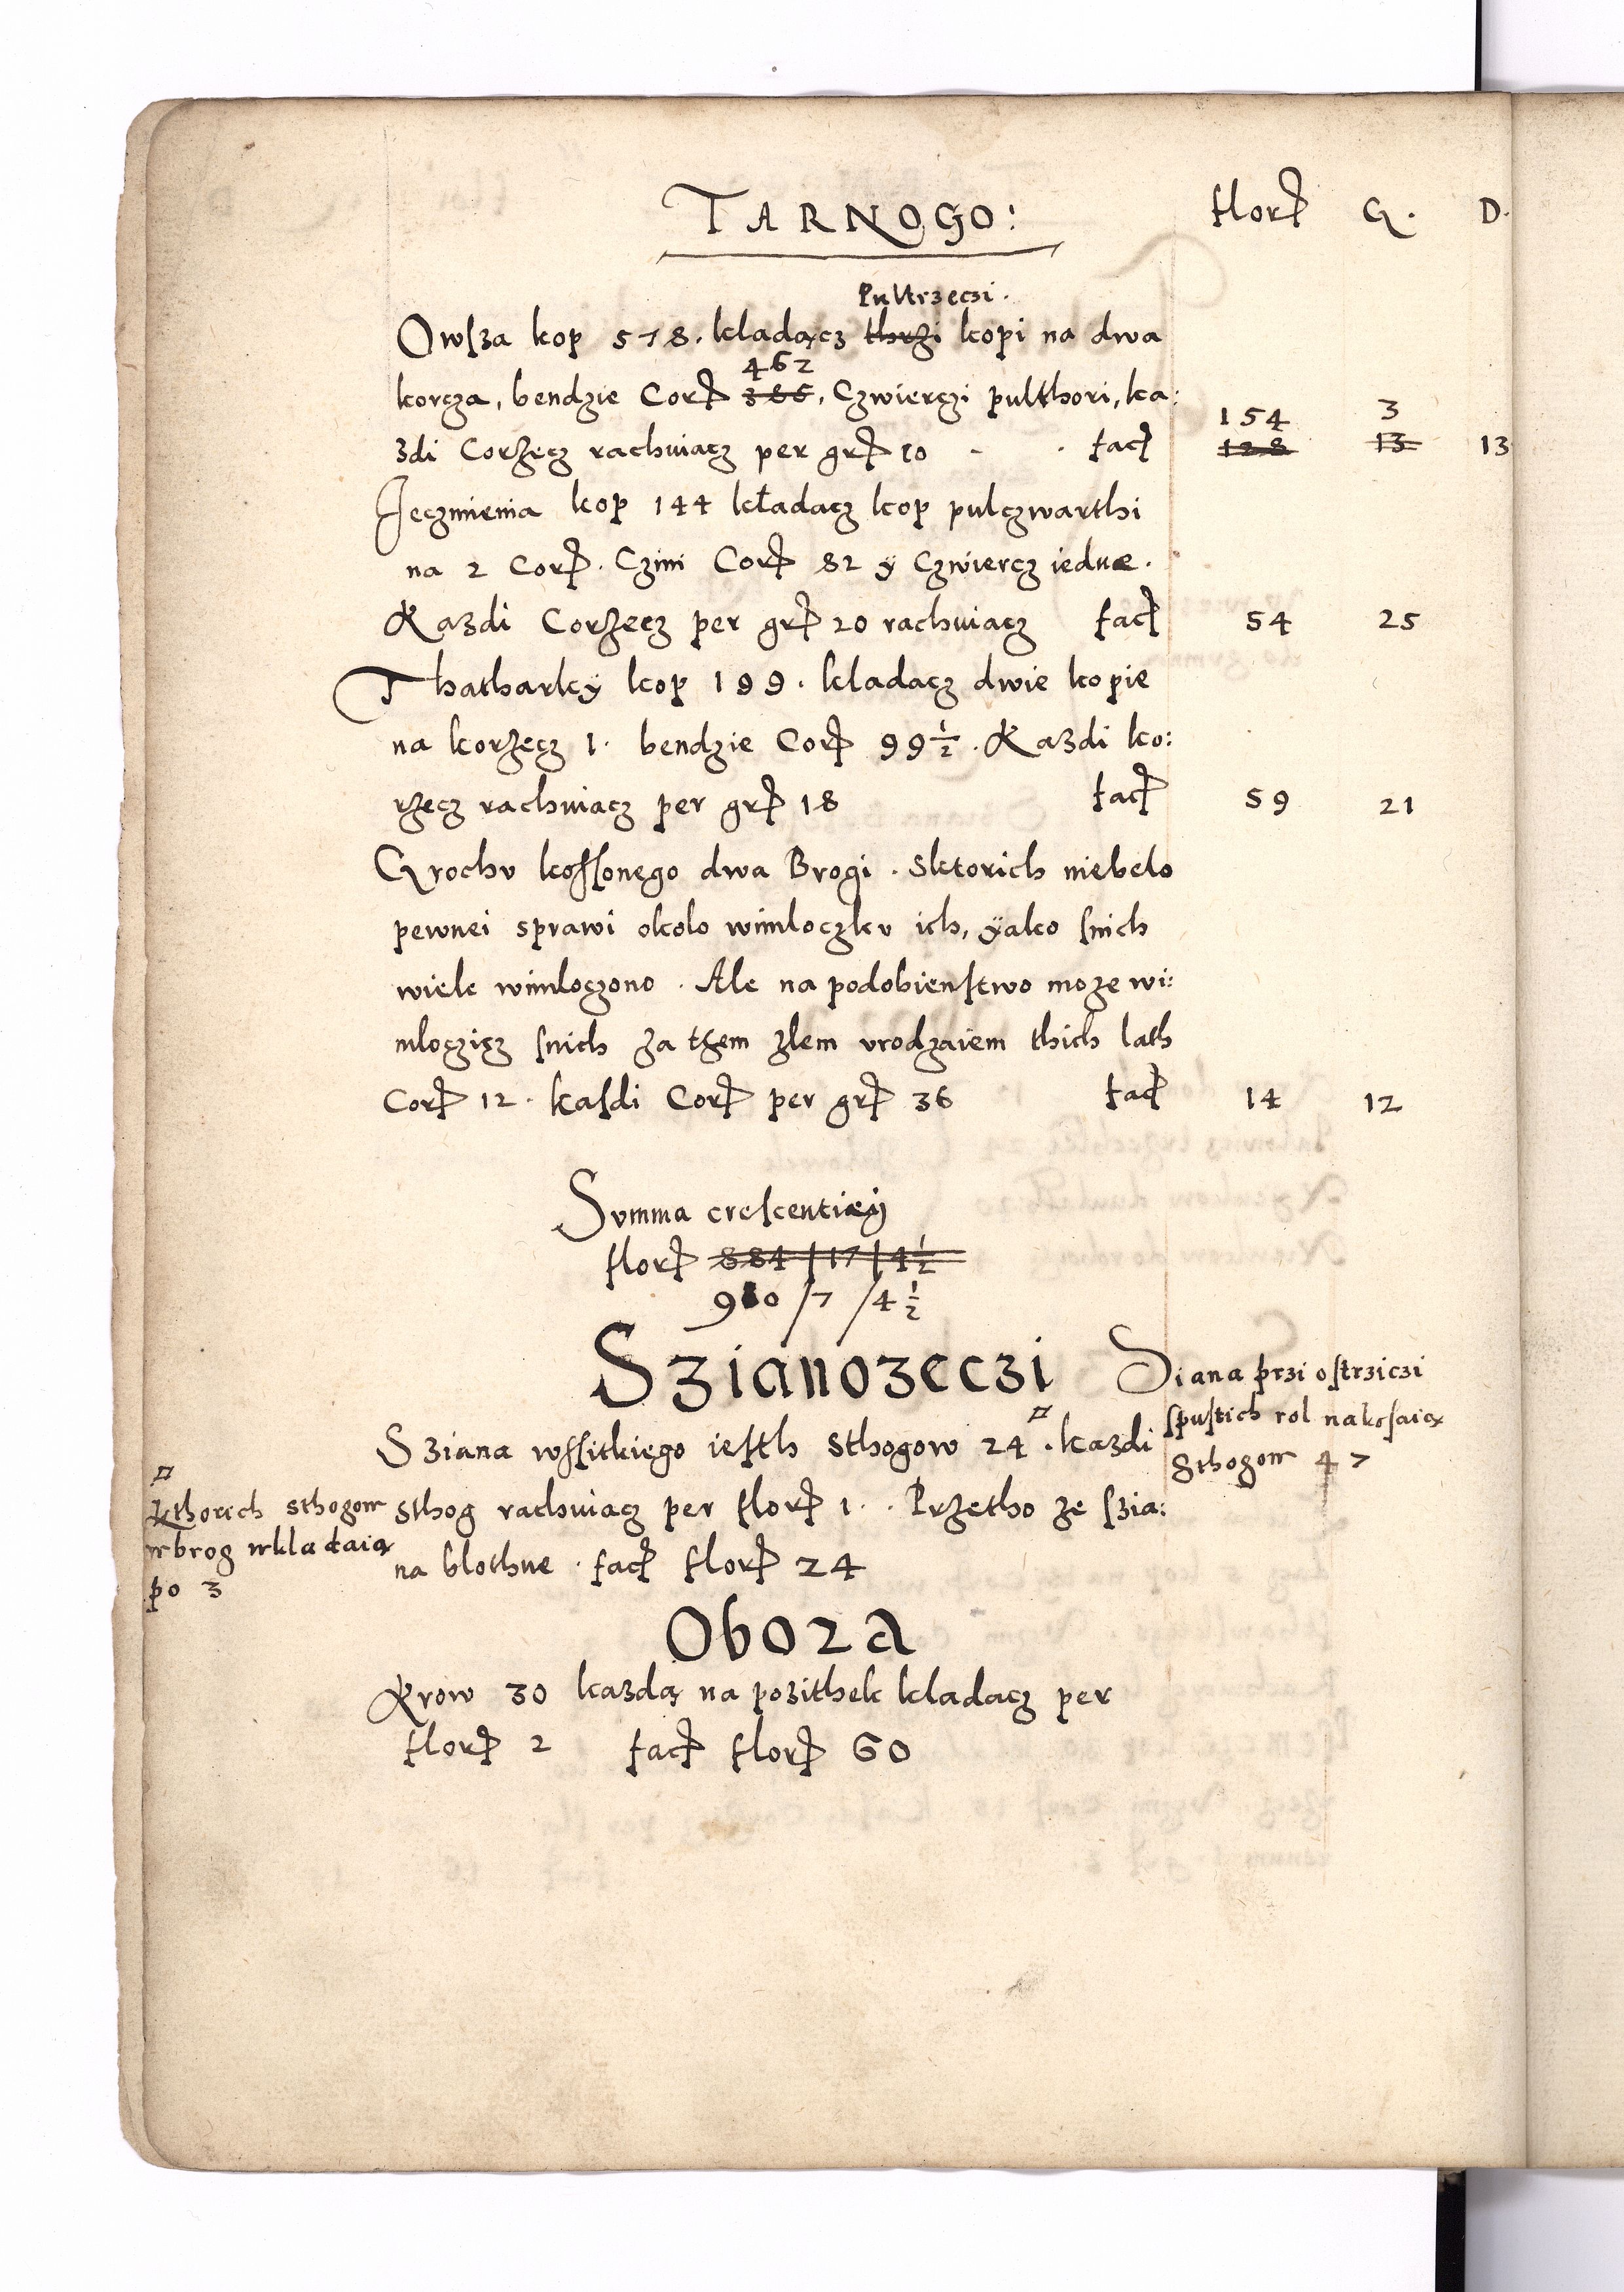 TARNOGO: flor G. D.
Pulltrzeczi.
Owsza kop 578. kladącz thrzi kopi na dwa
462
korcza, bendzie Cor 385, Czwierczi pulthori, ka:
154 3
zdi Corzecz rachuiącz per gr 10 - . fac 128 13 13
Jęczmienia kop 144 kładacz kop pulczwarthi
na 2 Cor. Czini Cor 82 y Czwiercz iednę.
Kazdi Corzecz per gr 20 rachuiącz fac 54 25
Thatharky kop 199. kladacz dwie kopie
na korzecz 1. bendzie Cor 99 1/2. Kazdi ko:
rzecz rachuiącz per gr 18 fac 59 21
Grochv kossonego dwa Brogi. Sktorich niebelo
pewnei sprawi okolo wimloczkv ich, yako snich
wiele wimloczono. Ale na podobienstwo moze wi:
mloczicz snich za them zlem vrodzaiem thich lath
Cor 12. kasdi Cor per gr 36 fac 14 12
Svmma crescentiey
flor 884 / 17 / 4 1/2
910 / 7 / 4 1/2
Szianozeczi
Siana przi ostrziczi
spustich rol nakosaią
Sthogow 47
Sziana wssitkiego iesth Sthogow 24. kazdi
sthog rachuiącz per flor 1. Przetho ze szia:
na blothne. fac flor 24
kthorich sthogow
wbrog wkladaią
po 3
Obora
Krow 30 kazdą na pozithek kladacz per
flor 2 fac flor 60